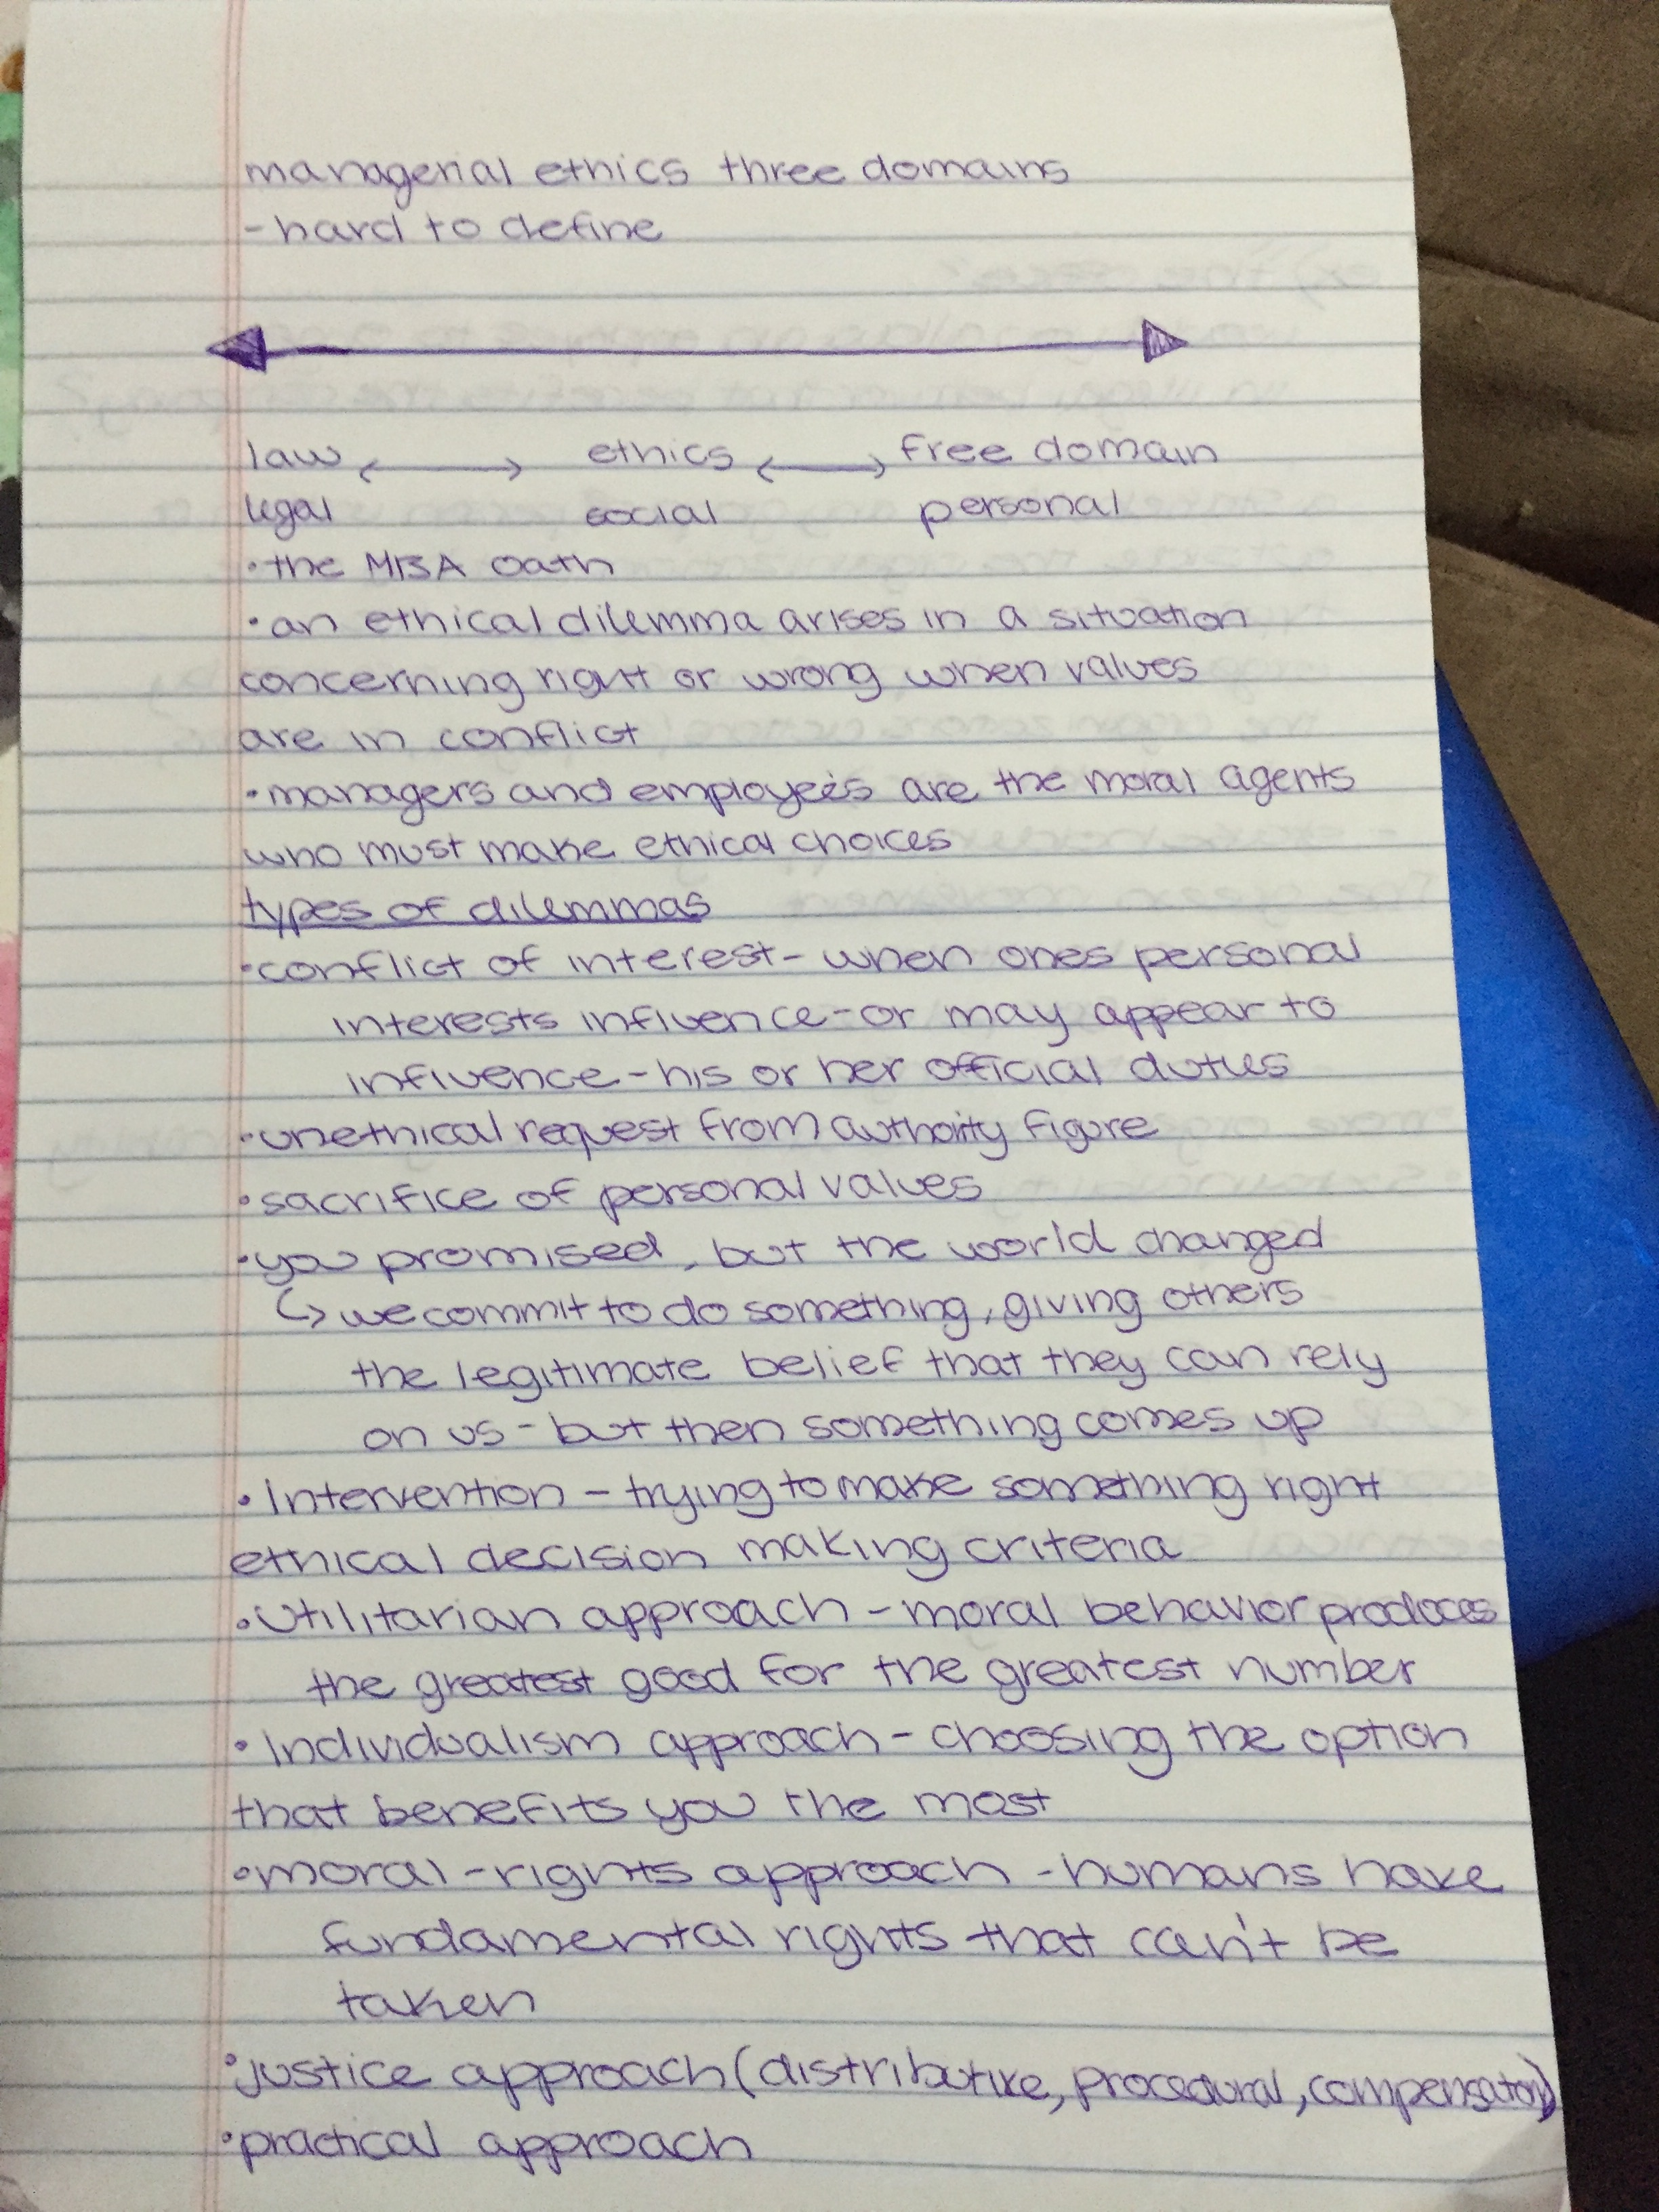 managerial ethics three domains
- hard to define
law <---> ethics <---> free domain
legal social personal
• the MBA oath
• an ethical dilemma arises in a situation
concerning right or wrong when values
are in conflict
• managers and employees are the moral agents
who must make ethical choices
types of dilemmas
• conflict of interest - when ones personal
interests influence - or may appear to
influence - his or her official duties
• unethical request from authority figure
• sacrifice of personal values
• you promised, but the world changed
↳ we commit to do something, giving others
the legitimate belief that they can rely
on us - but then something comes up
• Intervention - trying to make something right
ethical decision making criteria
• Utilitarian approach - moral behavior produces
the greatest good for the greatest number
• Individualism approach - choosing the option
that benefits you the most
• moral - rights approach - humans have
fundamental rights that can't be
taken
• justice approach (distributive, procedural, compensatory)
• practical approach